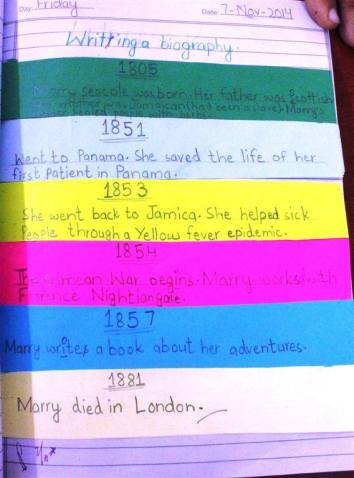 Day: Friday Date: 7-Nov-2014
Writting a biography.
1805
Marry seacole was born. Her father was Scottish
Her mother was Jamaican (had been a slave). Marry's
healed people with herbs.
1851
Went to Panama. She saved the life of her
first patient in Panama.
1853
She went back to Jamica. She helped sick
People through a Yellow fever epidemic.
1854
The Crimean War begins. Marry works with
Florence Nightiangale.
1857
Marry writes a book about her adventures.
1881
Marry died in London.